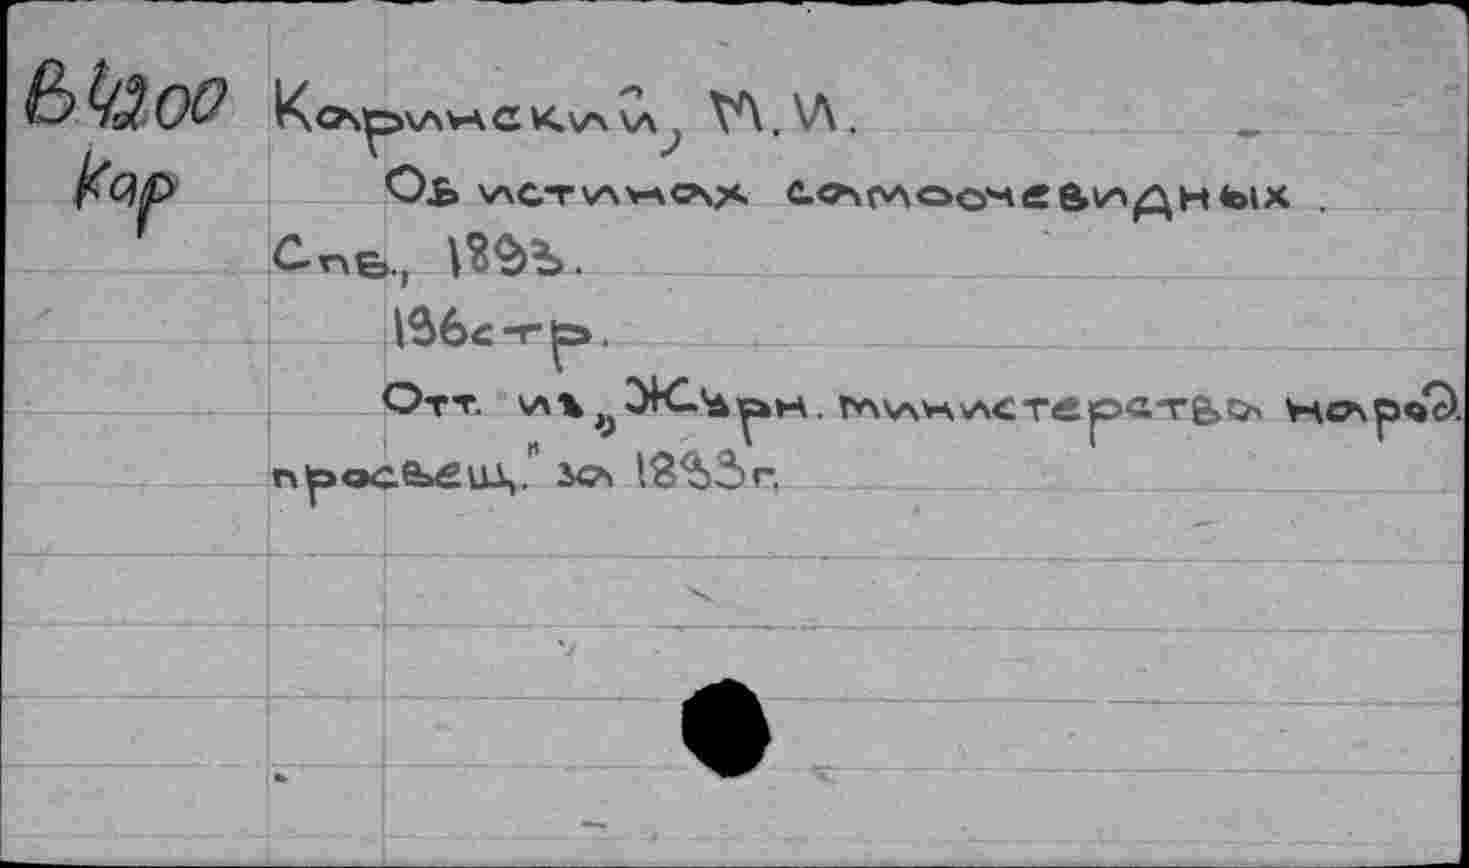 Каринский, М. И.
Кар
Об истинах самоочевидных.
Спб., 1893.
196 стр.
Отт. из „Журн. министерства народ.
просвещ." за 1893 г.